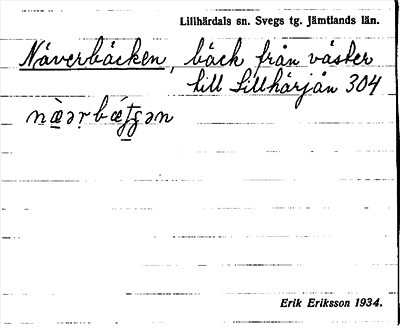 Lillhärdals sn. Svegs tg. Jämtlands län.
Näverbäcken, bäck från väster
till Lillhärjån 304
Erik Eriksson 1934.